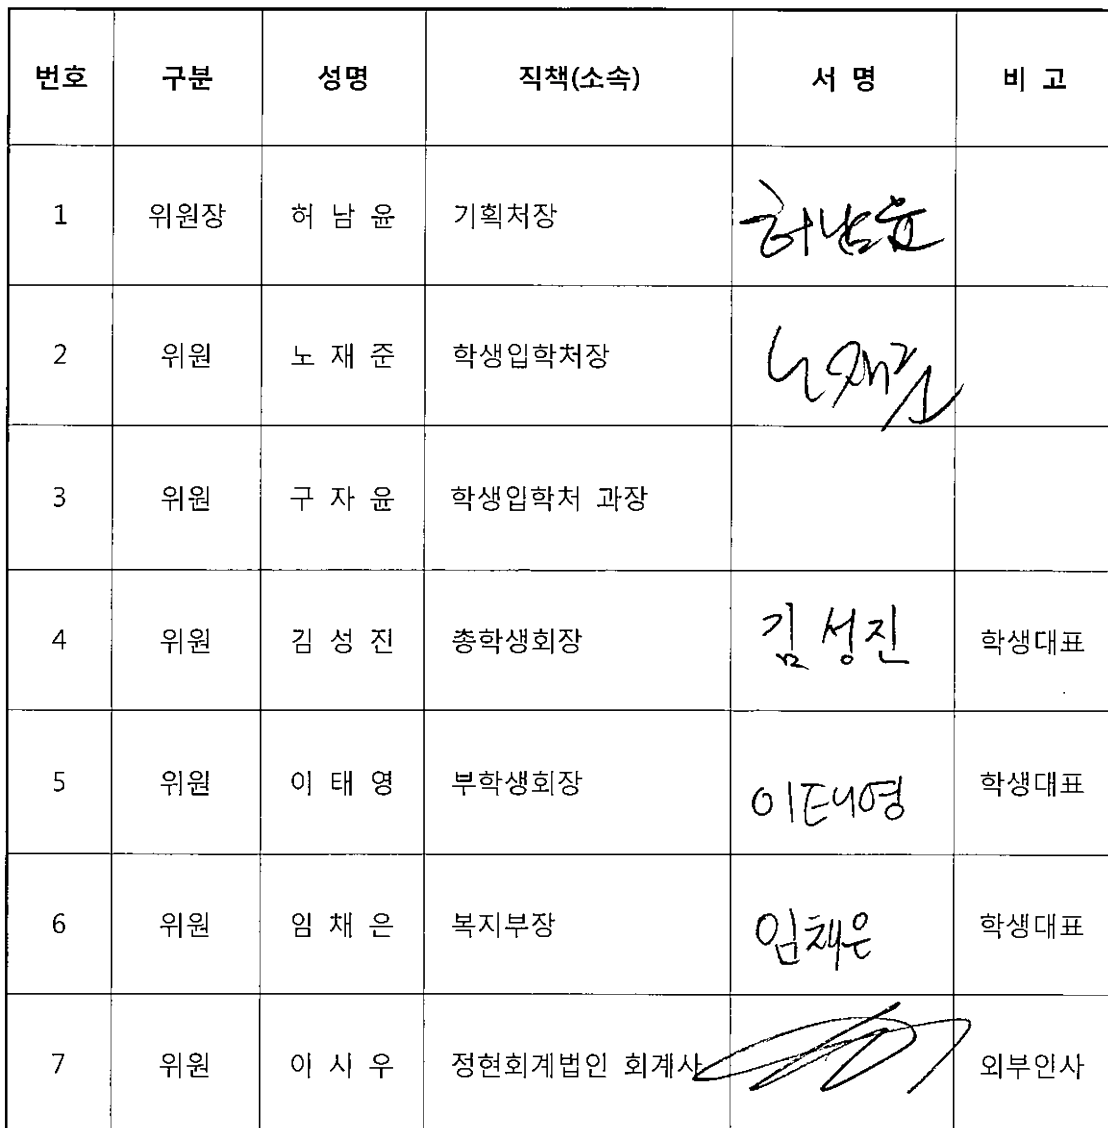 번호 구분 성명 직책(소속) 서 명 비 고
1 위원장 허 남 윤 기획처장 허남윤
2 위원 노 재 준 학생입학처장 노재준
3 위원 구 자 윤 학생입학처 과장
4 위원 김 성 진 총학생회장 김성진 학생대표
5 위원 이 태 영 부학생회장 이태영 학생대표
6 위원 임 채 은 복지부장 임채은 학생대표
7 위원 이 시 우 정현회계법인 회계사 외부인사